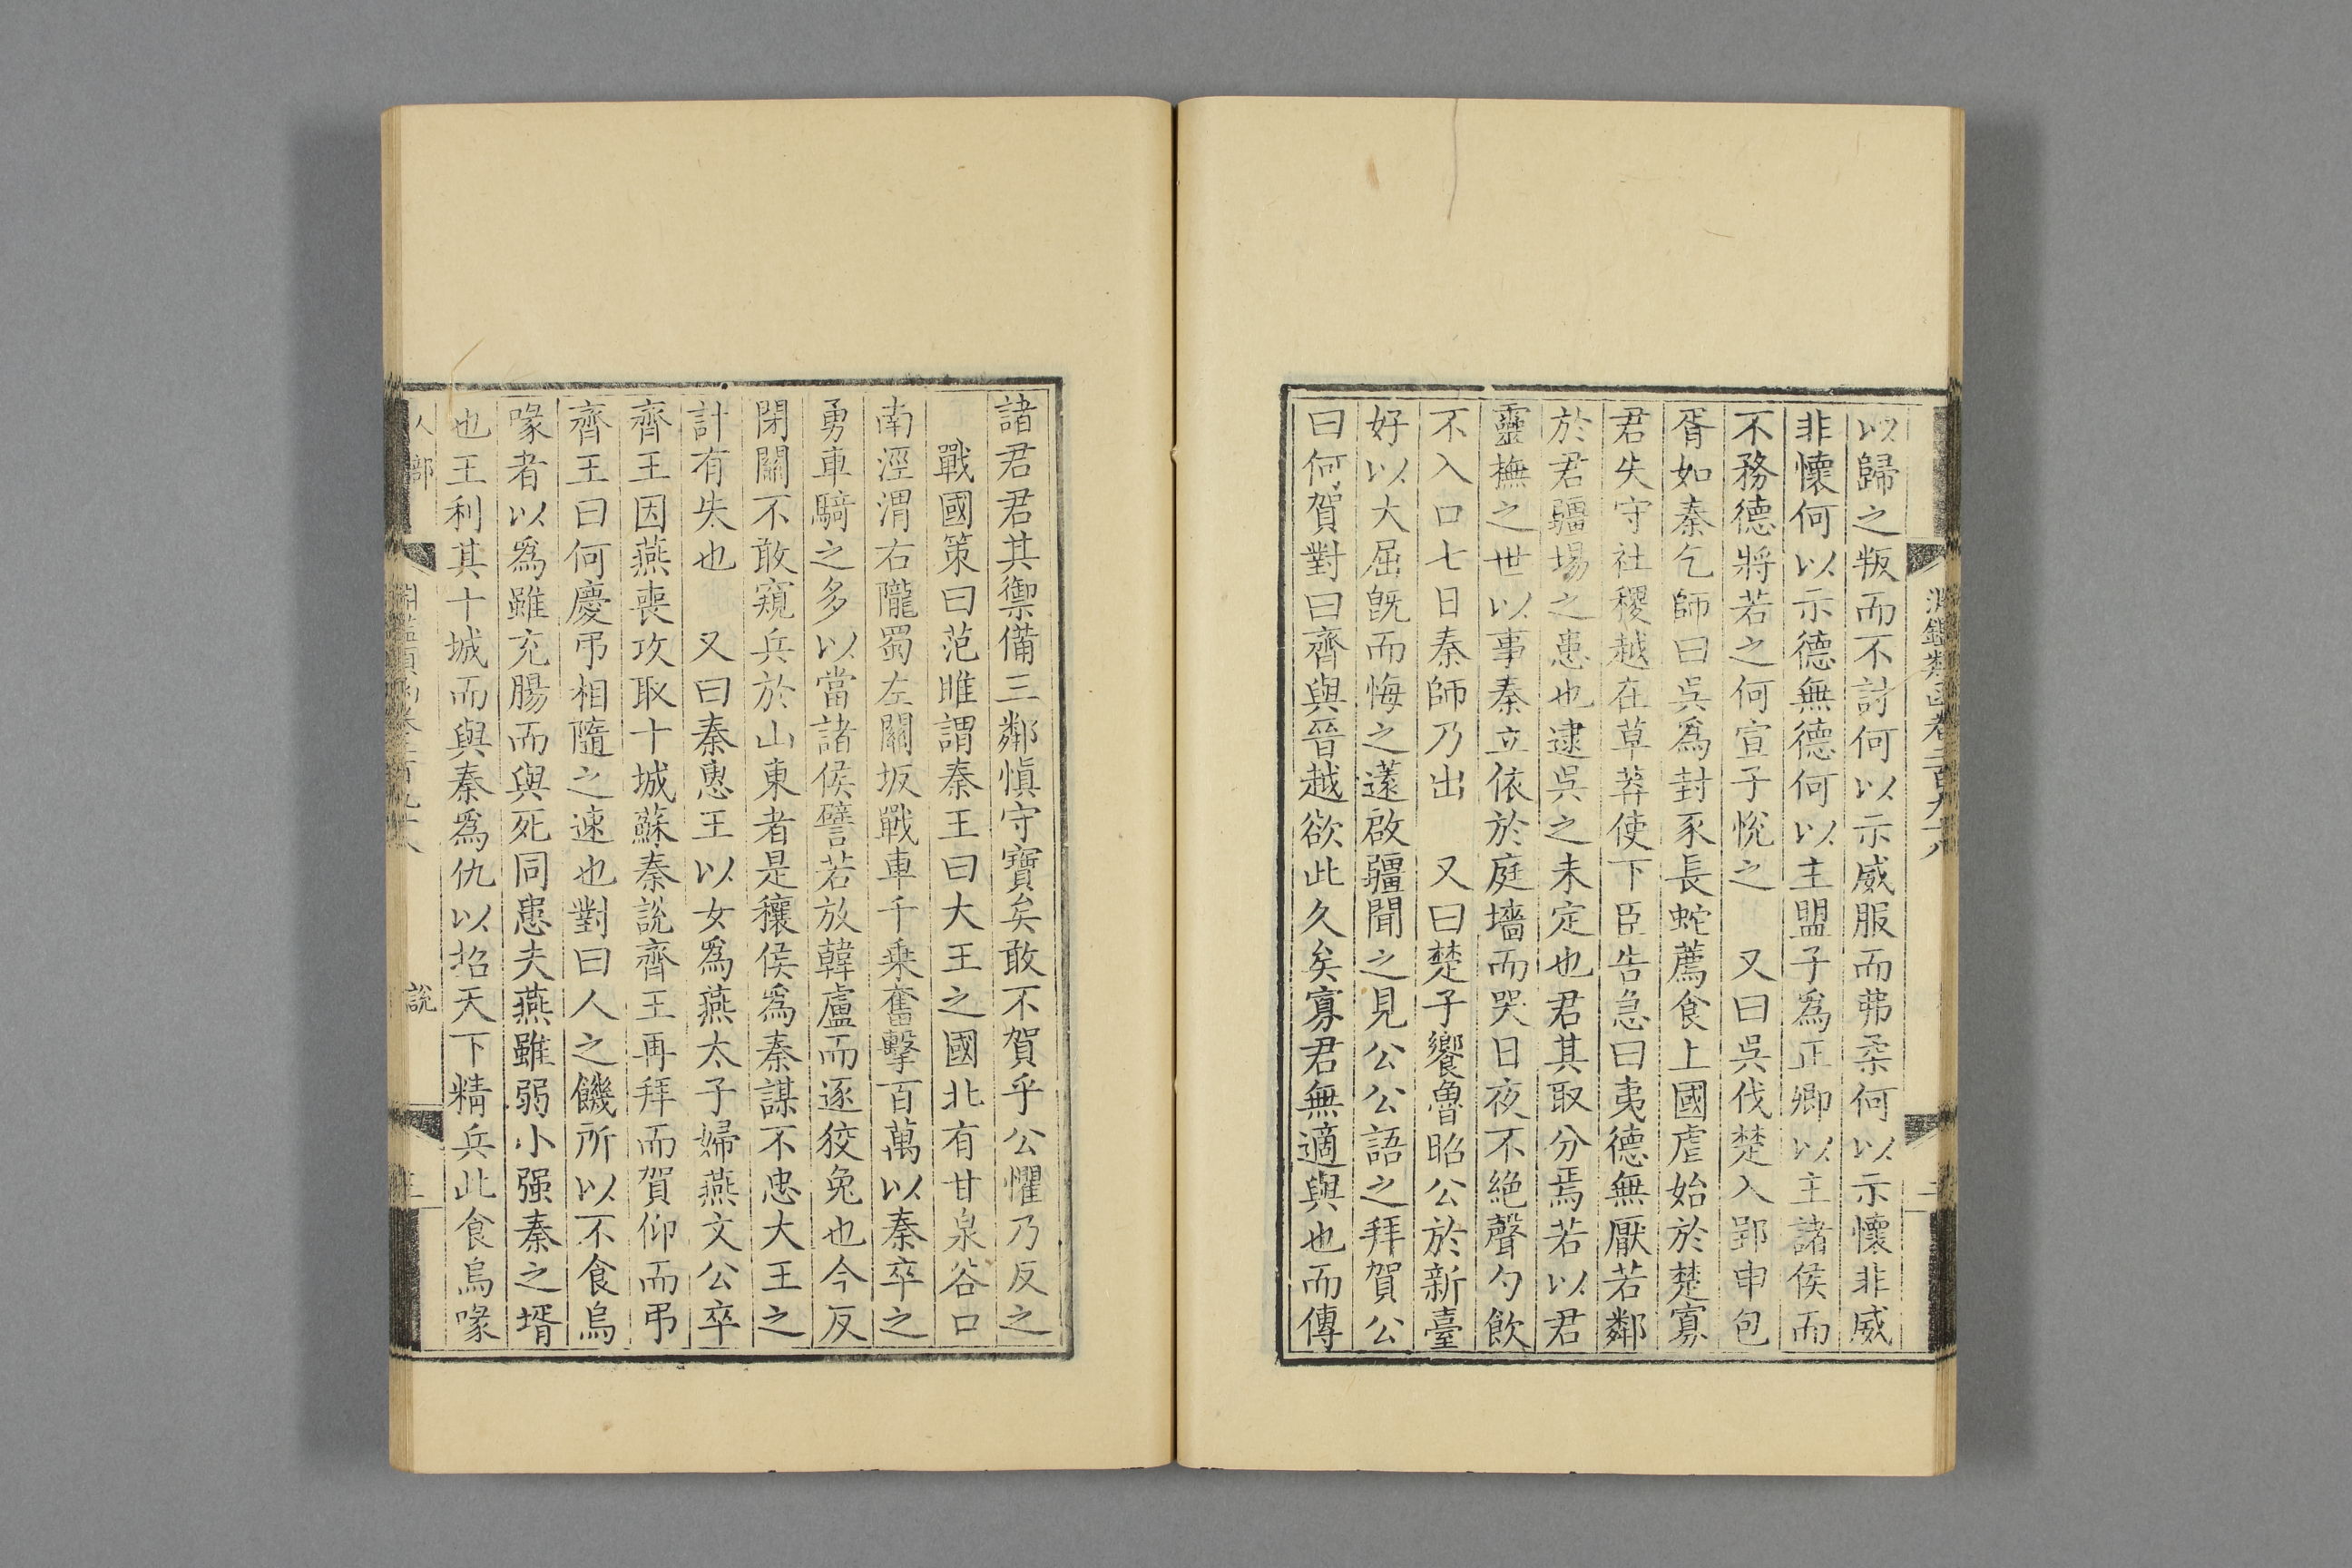 以歸之叛而不討何以示威服而弗柔何以示懷非威
非懷何以示德無德何以主盟子爲正卿以主諸侯而
不務德將若之何宣子悅之　又曰吳伐楚入郢申包
胥如秦乞師曰吳爲封豕長蛇薦食上國虐始於楚寡
君失守社稷越在草莽使下臣告急曰夷德無厭若鄰
於君疆場之患也逮吳之未定也君其取分焉若以君
靈撫之世以事秦立依於庭墻而哭日夜不絕聲勺飲
不入口七日秦師乃出　又曰楚子饗魯昭公於新臺
好以大屈旣而悔之薳啟疆聞之見公公語之拜賀公
曰何賀對曰齊與晉越欲此久矣寡君無適與也而傳
諸君君其禦備三鄰愼守寶矣敢不賀乎公懼乃反之
戰國策曰范雎謂秦王曰大王之國北有甘泉谷口
南涇渭右隴蜀左關坂戰車千乗奮擊百萬以秦卒之
勇車騎之多以當諸侯譬若放韓盧而逐狡兔也今反
閉關不敢窺兵於山東者是穰侯爲秦謀不忠大王之
計有失也　又曰秦惠王以女爲燕太子婦燕文公卒
齊王因燕喪攻取十城蘇秦說齊王再拜而賀仰而弔
齊王曰何慶弔相隨之速也對曰人之饑所以不食烏
喙者以爲雖充腸而與死同患夫燕雖弱小强秦之壻
也王利其十城而與秦爲仇以招天下精兵此食烏喙
人部
說